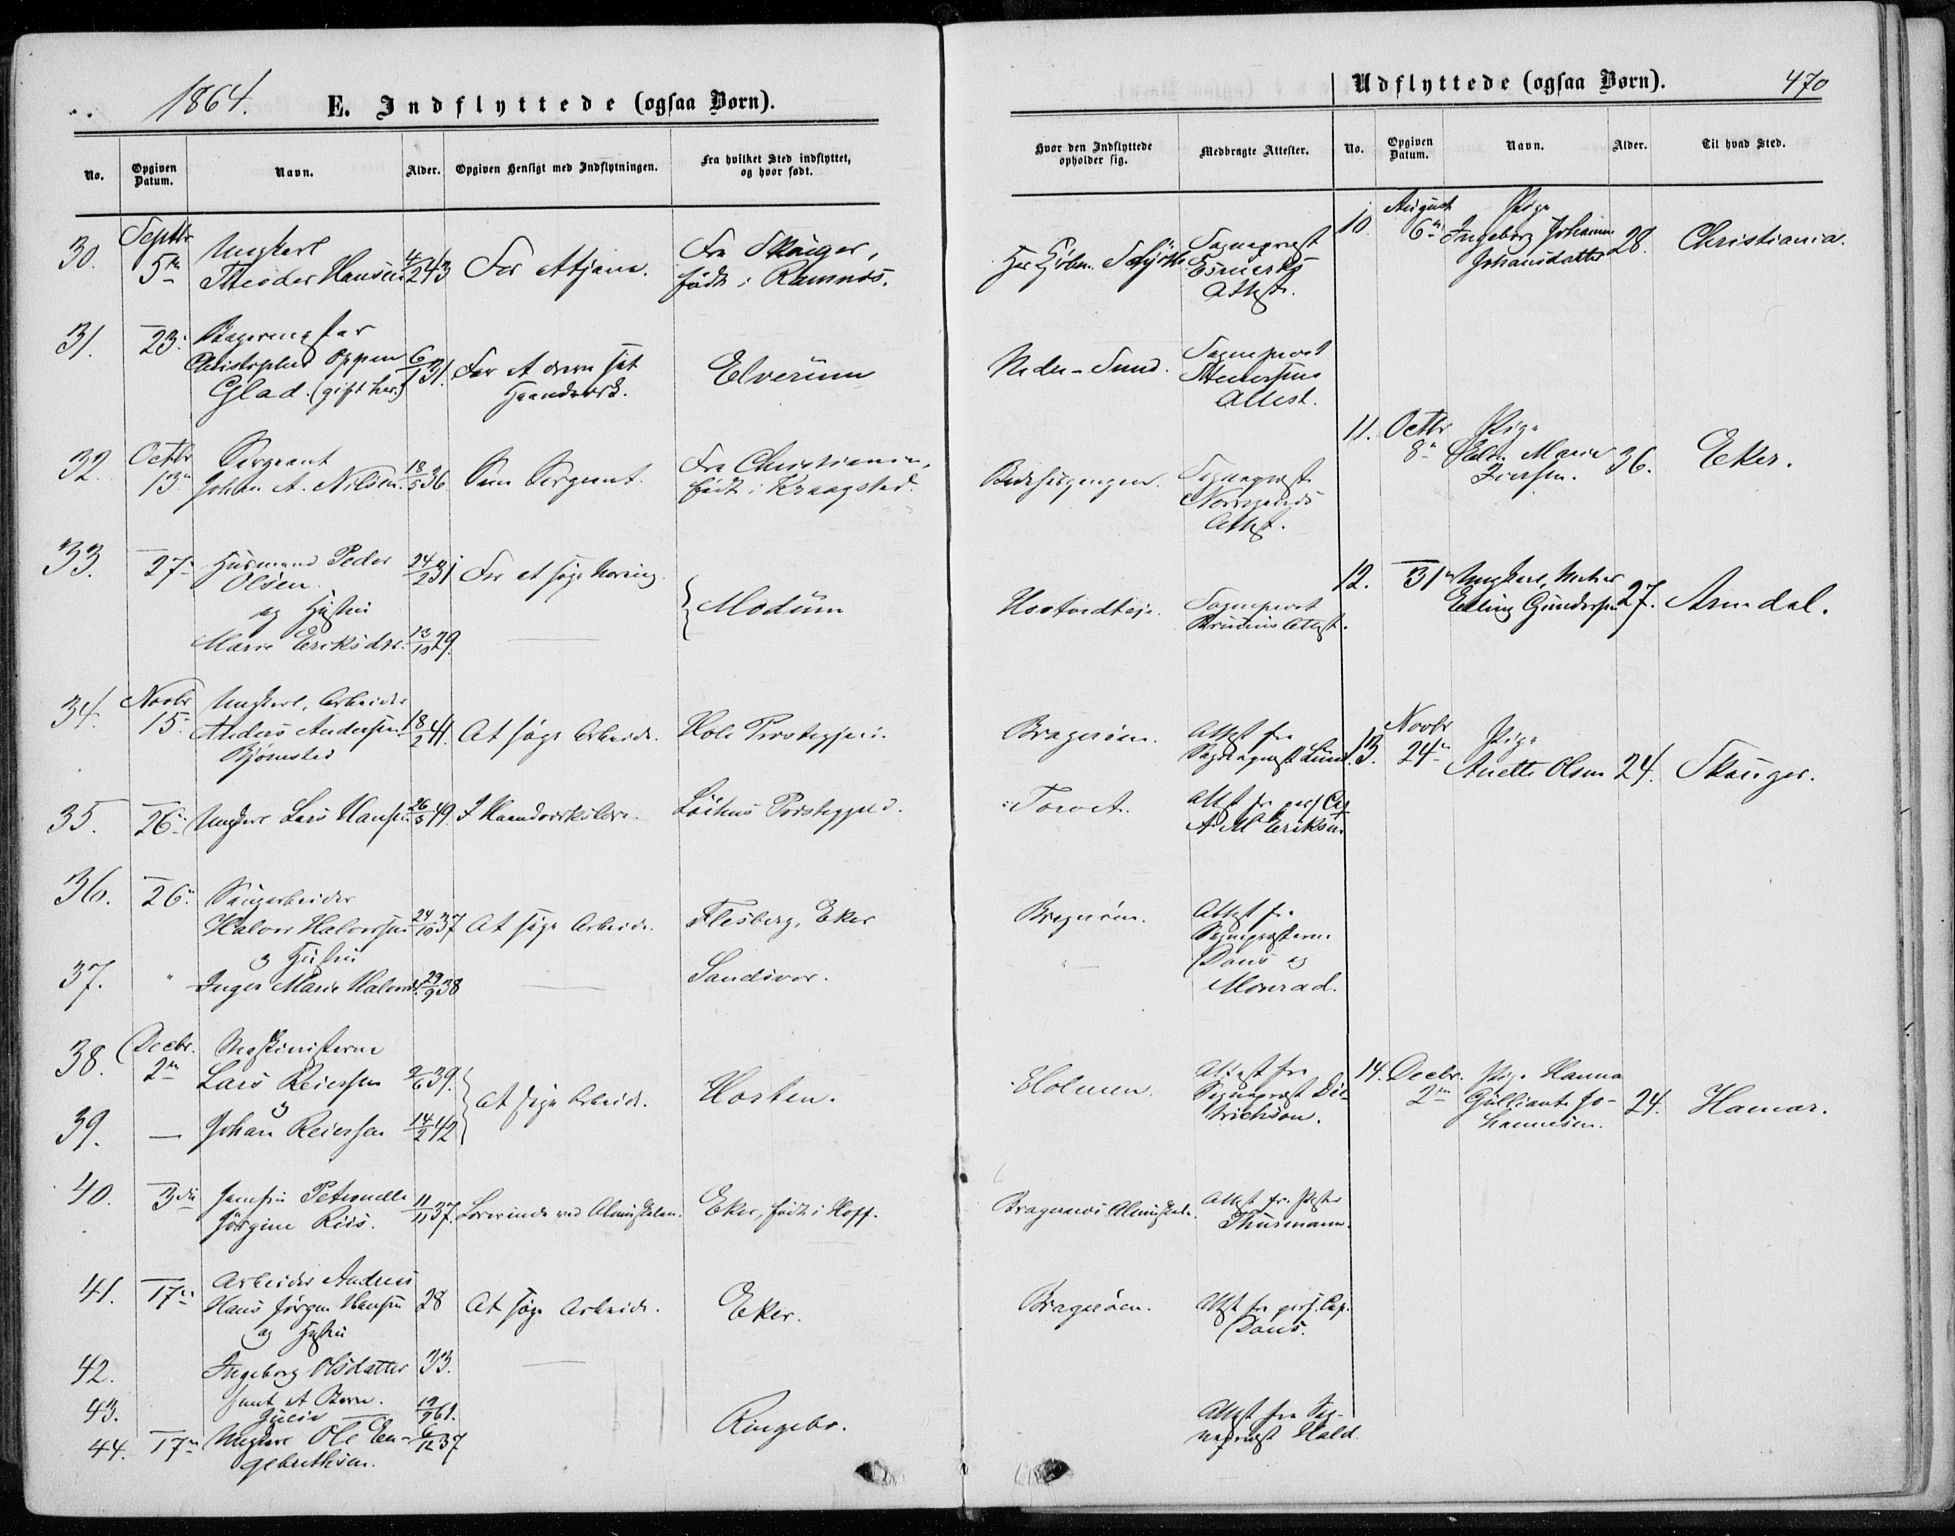 1864.
E. Indflyttede (ogsaa Børn).
No.
Opgiven Datum.
Navn.
Alder.
Opgiven Hensigt med Indflytningen.
Fra hvilket Sted indflyttet, og hvor født.
Hvor den Indflyttede opholder sig.
Medbragte Attester.
30. Septbr 5te
Ungkarl
Theodor Hansen 4/2 43
For at tjene.
Fra Skouger,
født i Ramnæs.
Sognepræst
Attest.
31. 23.
Bagermester
Christopher Oppen
Glad. (gift her.)
6/1 31.
For at drive sit
Haandværk.
Elverum
Nedre-Sund.
Sogneprest
Attest.
32. Octbr 13.
Sergeant
Johan A. Nilsen. 18/5 36
Som Sergeant.
Fra Christiania,
født i Kraagstad.
Sognepræst
Attest.
33. 27.
Husmand Peder
Olsen
og Hustru
Marie Eriksdtr. 13/10 29.
24/2 31
For at søge Næring
Modum
Sogneprest
Attest.
34. Novbr 15.
Ungkarl, Arbeider
Anders Andersen
Bjørnstad
18/2 41.
At søge Arbeide.
Hole Præstegjeld.
Bragerøen.
Attest fra
Sognepræst Lund.
35. 26.
Ungkarl Lars Hansen 26/3 49.
I Haandværkslære.
Præstegjeld.
Torvet.
Attest fra pers. Cap.
A M Eriksen
36. 26.
Saugarbeider
Halvor Halvorsen 24/10 37
At søge Arbeide.
Flesberg, Eker
Bragerøen.
Attest fra
Sognepræsterne
Daus og
Monrad.
37. "
og Hustru
Inger Marie Halvorsd. 29/9 38
Sandsvær.
38. Decbr. 2den
Maskinisterne
Lars Reiersen 2/6 39.
og
39. — Johan Reiersen 14/2 42
At søge Arbeide.
Horten.
Holmen.
Attest fra
Sognepræst Die-
trichson.
40. 3die
Jomfru Petronelle
Jörgine Riis. 11/11 37.
Lærerinde ved Almueskolen.
Eker, født i Hoff.
Bragernæs Almueskole.
Attest fra Pastor
Thurmann.
41. 17de
Arbeider Andreas
Hans Jörgen Hansen 28
og Hustru
At søge Arbeide.
Eker.
Bragerøen.
Attest fra pers. Cap.
Daus.
42. Ingeborg Olsdatter 33.
43. samt et Barn.
Julie 19/9 61.
44. 17de
Ungkarl Ole En-
gebrethsen.
6/12 37
Ringebo.
Attest fra Sog-
nepræst Hald.
Udflyttede (ogsaa Børn).
470
No.
Opgiven Datum.
Navn.
Alder.
Til hvad Sted.
10. August 6te
Pige
Ingeborg Johanne
Johansdatter 28.
Christiania.
11. Octbr 8de
Pige
Marie
36.
Eker.
12. 31te
Ungkarl,
Erling Gundersen 27.
Arendal.
13. Novbr 24de
Pige
Anette Olsen 24.
Skouger.
14. Decbr. 2den
Pige Hanna
Gulliante Jo-
hannesen.
24.
Hamar.